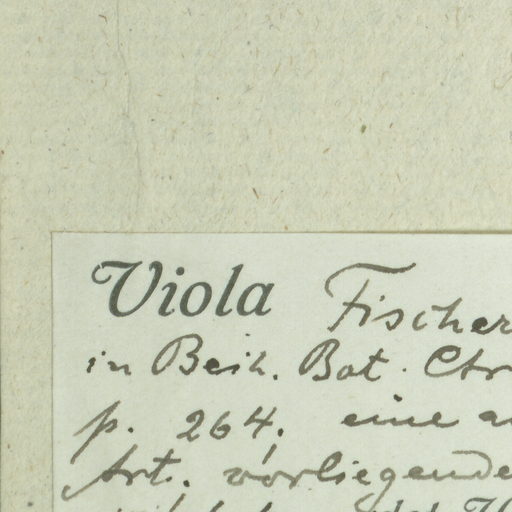 Viola Fischer
in Beih. Bot. Ctr
p. 264, eine a
Art, vorliegende